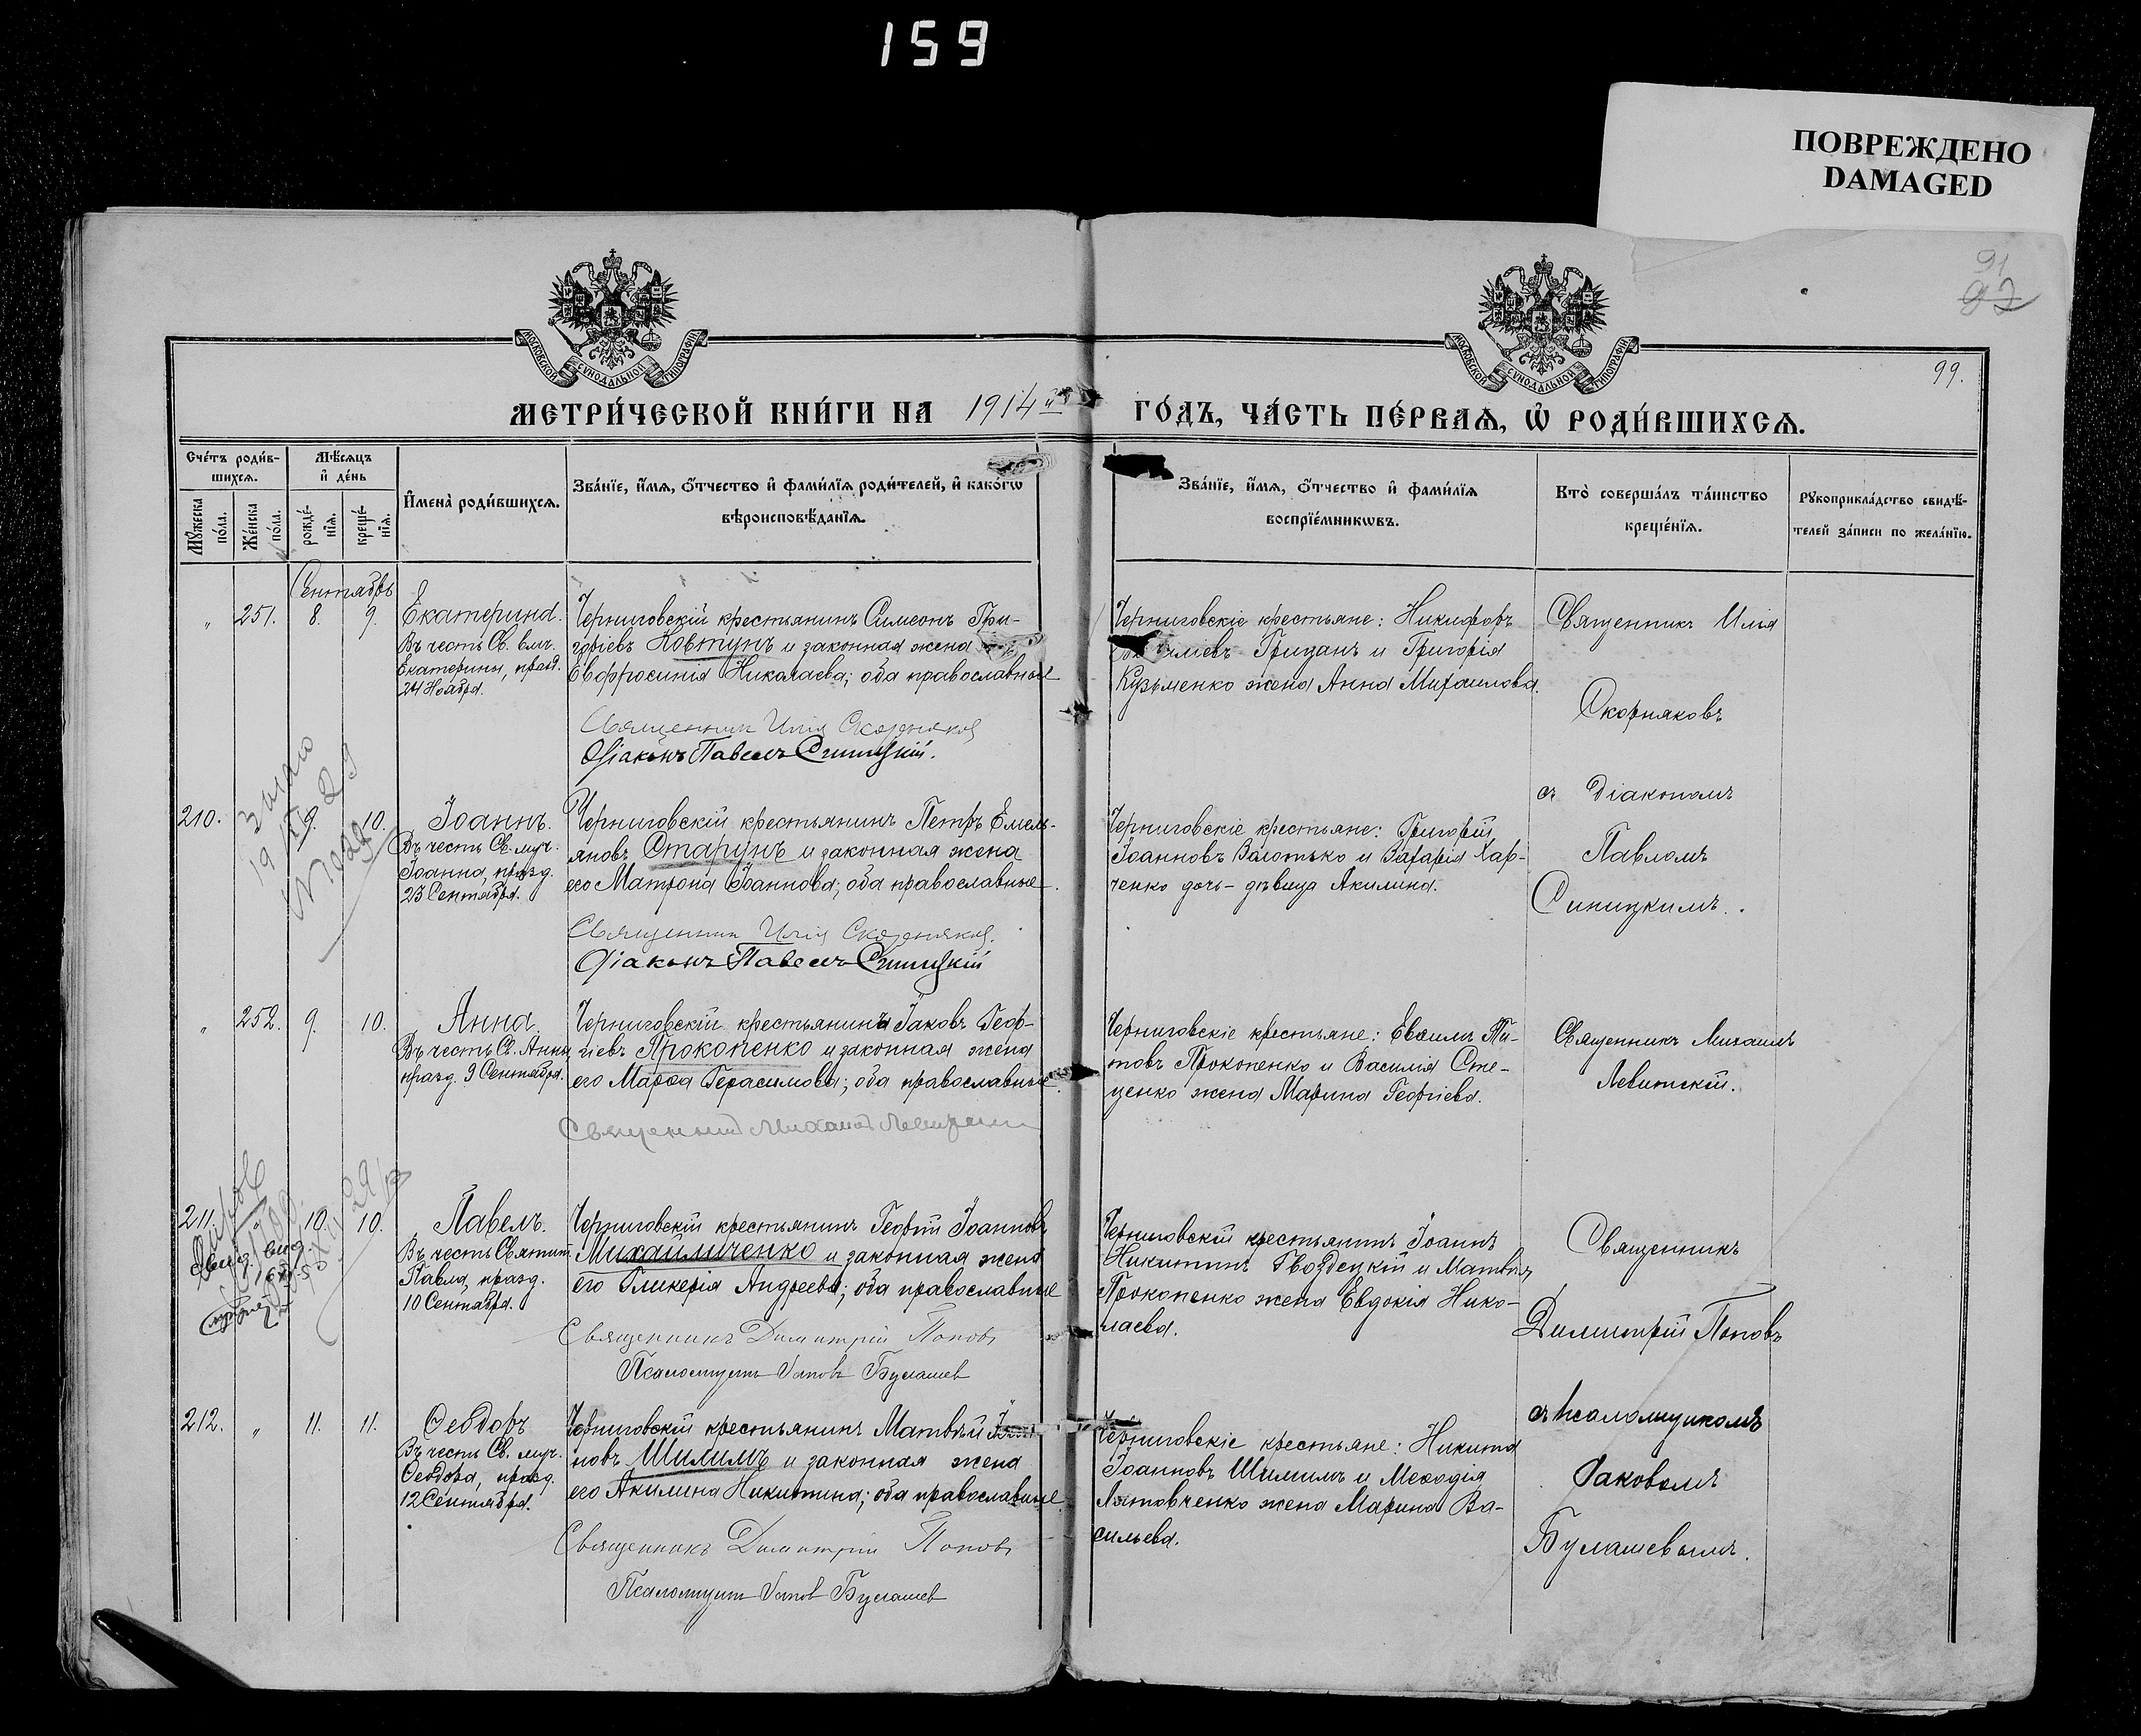 159
ПОВРЕЖДЕНО
DAMAGED
91
97
99.
МОСКОВСКОЙ СѴНОДАЛЬНОЙ ТИПОГРАФІИ
МОСКОВСКОЙ СѴНОДАЛЬНОЙ ТИПОГРАФІИ
МЕТРИ́ЧЕСКОЙ КНИ́ГИ НА 1914й ГО́ДЪ, ЧА́СТЬ ПЕ́РВАѦ, Ѡ҆ РОДИ́ВШИХСѦ.
Сче́тъ роди́в-
шихсѧ.
Мѣ́сѧцъ
и҆ де́нь
Мꙋ́жеска
по́ла.
Же́нска
по́ла.
рожде́-
нїѧ.
креще́-
нїѧ.
И҆мена̀ роди́вшихсѧ.
Зва́нїе, и҆́мѧ, ѻ҆́тчество и҆ фами́лїѧ роди́телей, и҆ како́гѡ
вѣроисповѣ́данїѧ.
Зва́нїе, и҆́мѧ, ѻ҆́тчество и҆ фами́лїѧ
воспрїе́мникѡвъ.
Кто̀ соверша́лъ та́инство
креще́нїѧ.
Рꙋкоприкла́дство свидѣ́-
телей за́писи по жела́нїю.
Сентябрь
" 251. 8. 9.
Екатерина.
Въ честь Св. влм.
Екатерины, празд.
24 Ноября.
Черниговскій крестьянинъ Симеонъ Гри-
горіевъ Ковтунъ и законная жена
Евфросинія Николаева; оба православные
Священник Илія Скорняков
Діаконъ Павелъ Синицкій.
Черниговскіе крестьяне: Никифоръ
Гриданъ и Григорія
Кузьменко жена Анна Михаилова.
Священникъ Илья
Скорняковъ
съ Діакономъ
Павломъ
Синицкимъ.
210. 9. 10.
Іоаннъ.
Въ честь Св. муч.
Іоанна, празд.
23 Сентября.
Черниговскій крестьянинъ Петръ Емель-
яновъ Старунъ и законная жена
его Матрона Іоаннова; оба православные.
Священник Илія Скорняков.
Діаконъ Павелъ Синицкій
Черниговскіе крестьяне: Григорій
Іоанновъ Волотько и Захарія Хар-
ченко дочь-дѣвица Акилина.
" 252. 9. 10.
Анна.
Въ честь Св. Анны
празд. 9 Сентября.
Черниговскій крестьянинъ Іаковъ Геор-
гіевъ Прокопенко и законная жена
его Марѳа Герасимова; оба православные.
Священник Михаил Левитскій
Черниговскіе крестьяне: Евѳимъ Ти-
товъ Прокопенко и Василія Сте-
ценко жена Марина Георгіева.
Священникъ Михаилъ
Левитскій.
211. " 10. 10.
Павелъ.
Въ честь Святит.
Павла, празд.
10 Сентября.
Черниговскій крестьянинъ Георгій Іоанновъ
Михайличенко и законная жена
его Гликерія Андреева; оба православные
Священникъ Димитрій Поповъ
Псаломщикъ Іаковъ Булашев
Черниговскій крестьянинъ Іоаннъ
Никитинъ Гвоздецкій и Матвія
Прокопенко жена Евдокія Нико-
лаева.
Священникъ
Димитрій Поповъ
съ псаломщикомъ
Іаковомъ
Булашевымъ.
212. " 11. 11.
Ѳеодоръ
Въ честь Св. муч.
Ѳеодора, празд.
12 Сентября.
Черниговскій крестьянинъ Матвѣй
новъ Шилимъ и законная жена
его Акилина Никитина; оба православные.
Священникъ Димитрій Поповъ
Псаломщикъ Іаков Булашев
Черниговскіе крестьяне: Никита
Іоанновъ Шилимъ и Меѳодія
Лятовченко жена Марина Ва-
сильева.